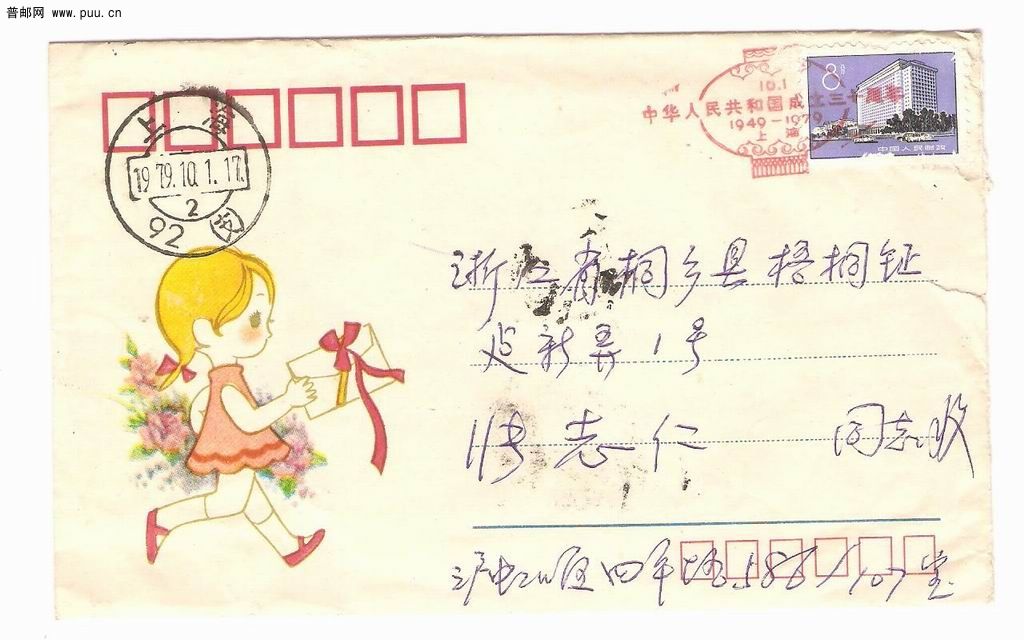 普邮网 www.puu.cn
上海
1979.10.1.17.
2
92 支
10.1
中华人民共和国成立三十周年
1949-1979
上海
8分
中国人民邮政
浙江省桐乡县梧桐
新弄1号
张志仁 同志收
沪虹口区四平路